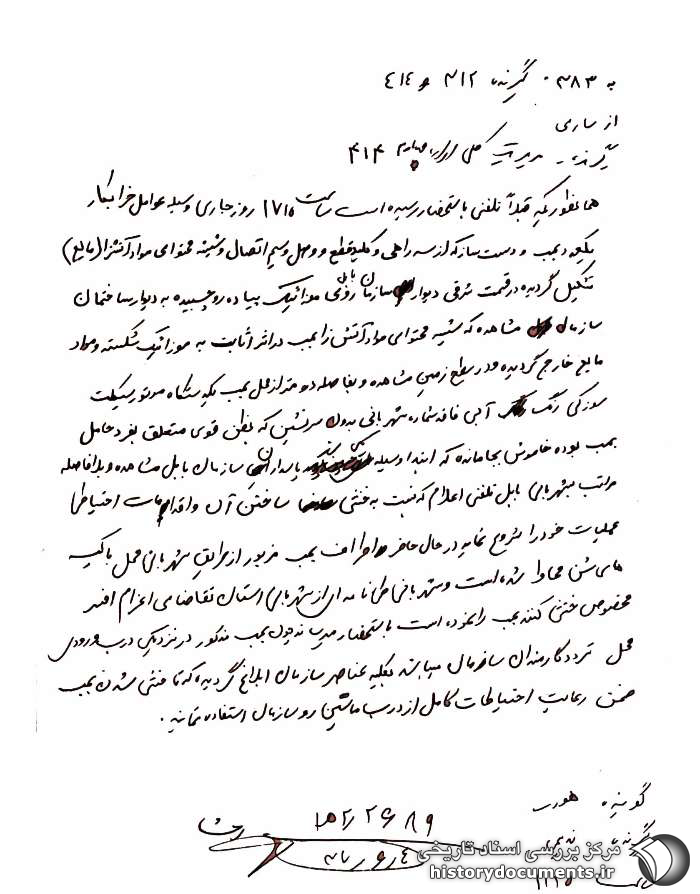 به ۳۸۳ گیرنده ۳۱۲ و ۴۱۴
از ساری
مدیریت کل اداره چهارم ۴۱۴
همانطوریکه قبلاً تلفنی باستحضار رسیده است ساعت ۱۷۱۵ روز جاری وسیله عوامل خرابکار
یکعدد بمب دست ساز که از سه راهی و کلید قطع و وصل و سیم اتصال و شیشه محتوای مواد آتشزا (مایع)
تشکیل گردیده در قسمت شرقی دیوار سازمان بابل روی موزائیک پیاده رو چسبیده به دیوار ساختمان
سازمان مشاهده که شیشه محتوای مواد آتش زا بمب در اثر اثابت به موزائیک شکسته و مواد
مایع خارج گردیده و در سطح زمین مشاهده و بفاصله دو متر از محل بمب یکدستگاه موتورسیکلت
سوزکی رنگ آبی فاقد شماره شهربانی بدون سرنشین که بظن قوی متعلق بفرد حامل
بمب بوده خاموش بجامانده که ابتدا وسیله پاسداران سازمان بابل مشاهده و بلافاصله
مراتب بشهربانی بابل تلفنی اعلام که نسبت به خنثی ساختن آن و اقدامات احتیاطی
عملیات خود را شروع نماید در حال حاضر اطراف بمب مزبور از طریق شهربانی محل با کیسه
های شن محاط شده است و شهربانی طی نامه ای از شهربانی استان تقاضای اعزام افسر
مخصوص خنثی کننده بمب را نموده است باستحضار میرساند چون بمب مذکور در نزدیکی درب ورودی
محل تردد کارمندان سازمان میباشد بکلیه عناصر سازمان ابلاغ گردیده که تا خنثی شدن بمب
ضمن رعایت احتیاطات کامل از درب ماشین رو سازمان استفاده نمایند.
گوینده
گیرنده
۲۶۸۹
مرکز بررسی اسناد تاریخی
historydocuments.ir